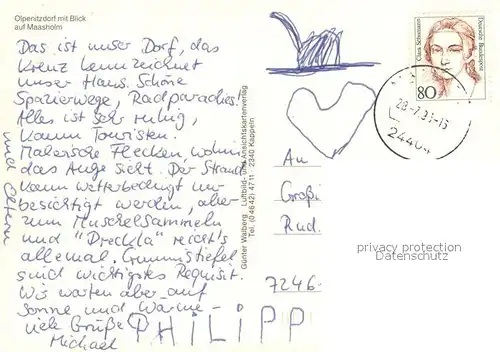 Olpenitzdorf mit Blick
auf Maasholm
Das ist unser Dorf, das
Kreuz kennzeichnet
unser Haus. Schöne
Spazierwege, Radparadies.
Alles ist sehr ruhig,
kaum Touristen.
Malerische Flecken, wohin
das Auge sieht. Der Strand
kann wetterbedingt nur
besichtigt werden, aber
zum Muschelsammeln
und "Dreckla" reicht's
allemal. Gummistiefel
sind wichtigstes Requisit.
Wir warten aber auf
Sonne und Wärme –
viele Grüße
Michael
PHILIPP
und Eltern
Günter Walberg Luftbild- und Ansichtskartenverlag
Tel. (0 46 42) 47 11 · 2340 Kappeln
Clara Schumann
Deutsche Bundespost
80
An
Großi
Rud.
7246
privacy protection
Datenschutz